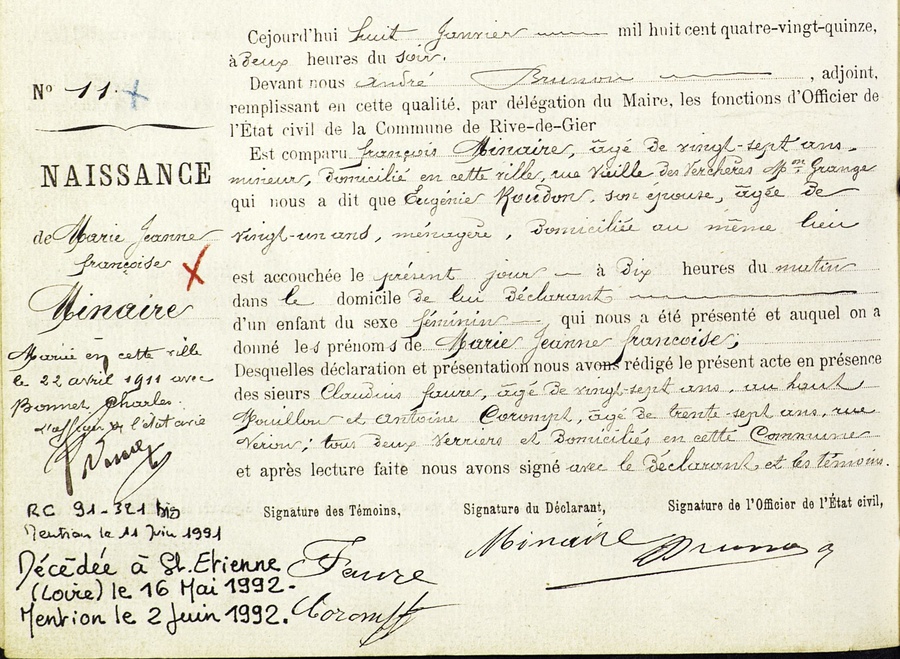 Nº 11.
NAISSANCE
de Marie Jeanne
françoise
Minaire
Mariée en cette ville
le 22 avril 1911 avec
Bonnet Charles.
L'officier de l'état civil
RC 91-321 bis
Mention le 11 Juin 1991
Décédée à St. Etienne
(Loire) le 16 Mai 1992-
Mention le 2 Juin 1992.
Cejourd'hui huit Janvier mil huit cent quatre-vingt-quinze,
à deux heures du soir.
Devant nous André Brunon, adjoint,
remplissant en cette qualité, par délégation du Maire, les fonctions d'Officier de
l'État civil de la Commune de Rive-de-Gier
Est comparu françois Minaire, âgé de vingt-sept ans,
mineur, domicilié en cette ville, rue Vieille des Verchères Mon Grange
qui nous a dit que Eugénie Roudon, son épouse, âgée de
vingt-un ans, ménagère, domiciliée au même lieu
est accouchée le présent jour à dix heures du matin
dans le domicile de lui déclarant
d'un enfant du sexe féminin qui nous a été présenté et auquel on a
donné les prénoms de Marie Jeanne françoise;
Desquelles déclaration et présentation nous avons rédigé le présent acte en présence
des sieurs Claudius faure, âgé de vingt-sept ans, au haut
Mouillon et Antoine Corompt, âgé de trente-sept ans, rue
tous deux verriers et domiciliés en cette Commune
et après lecture faite nous avons signé avec le déclarant et les témoins.
Signature des Témoins, Signature du Déclarant, Signature de l'Officier de l'État civil,
Minaire Brunon
Faure
Corompt